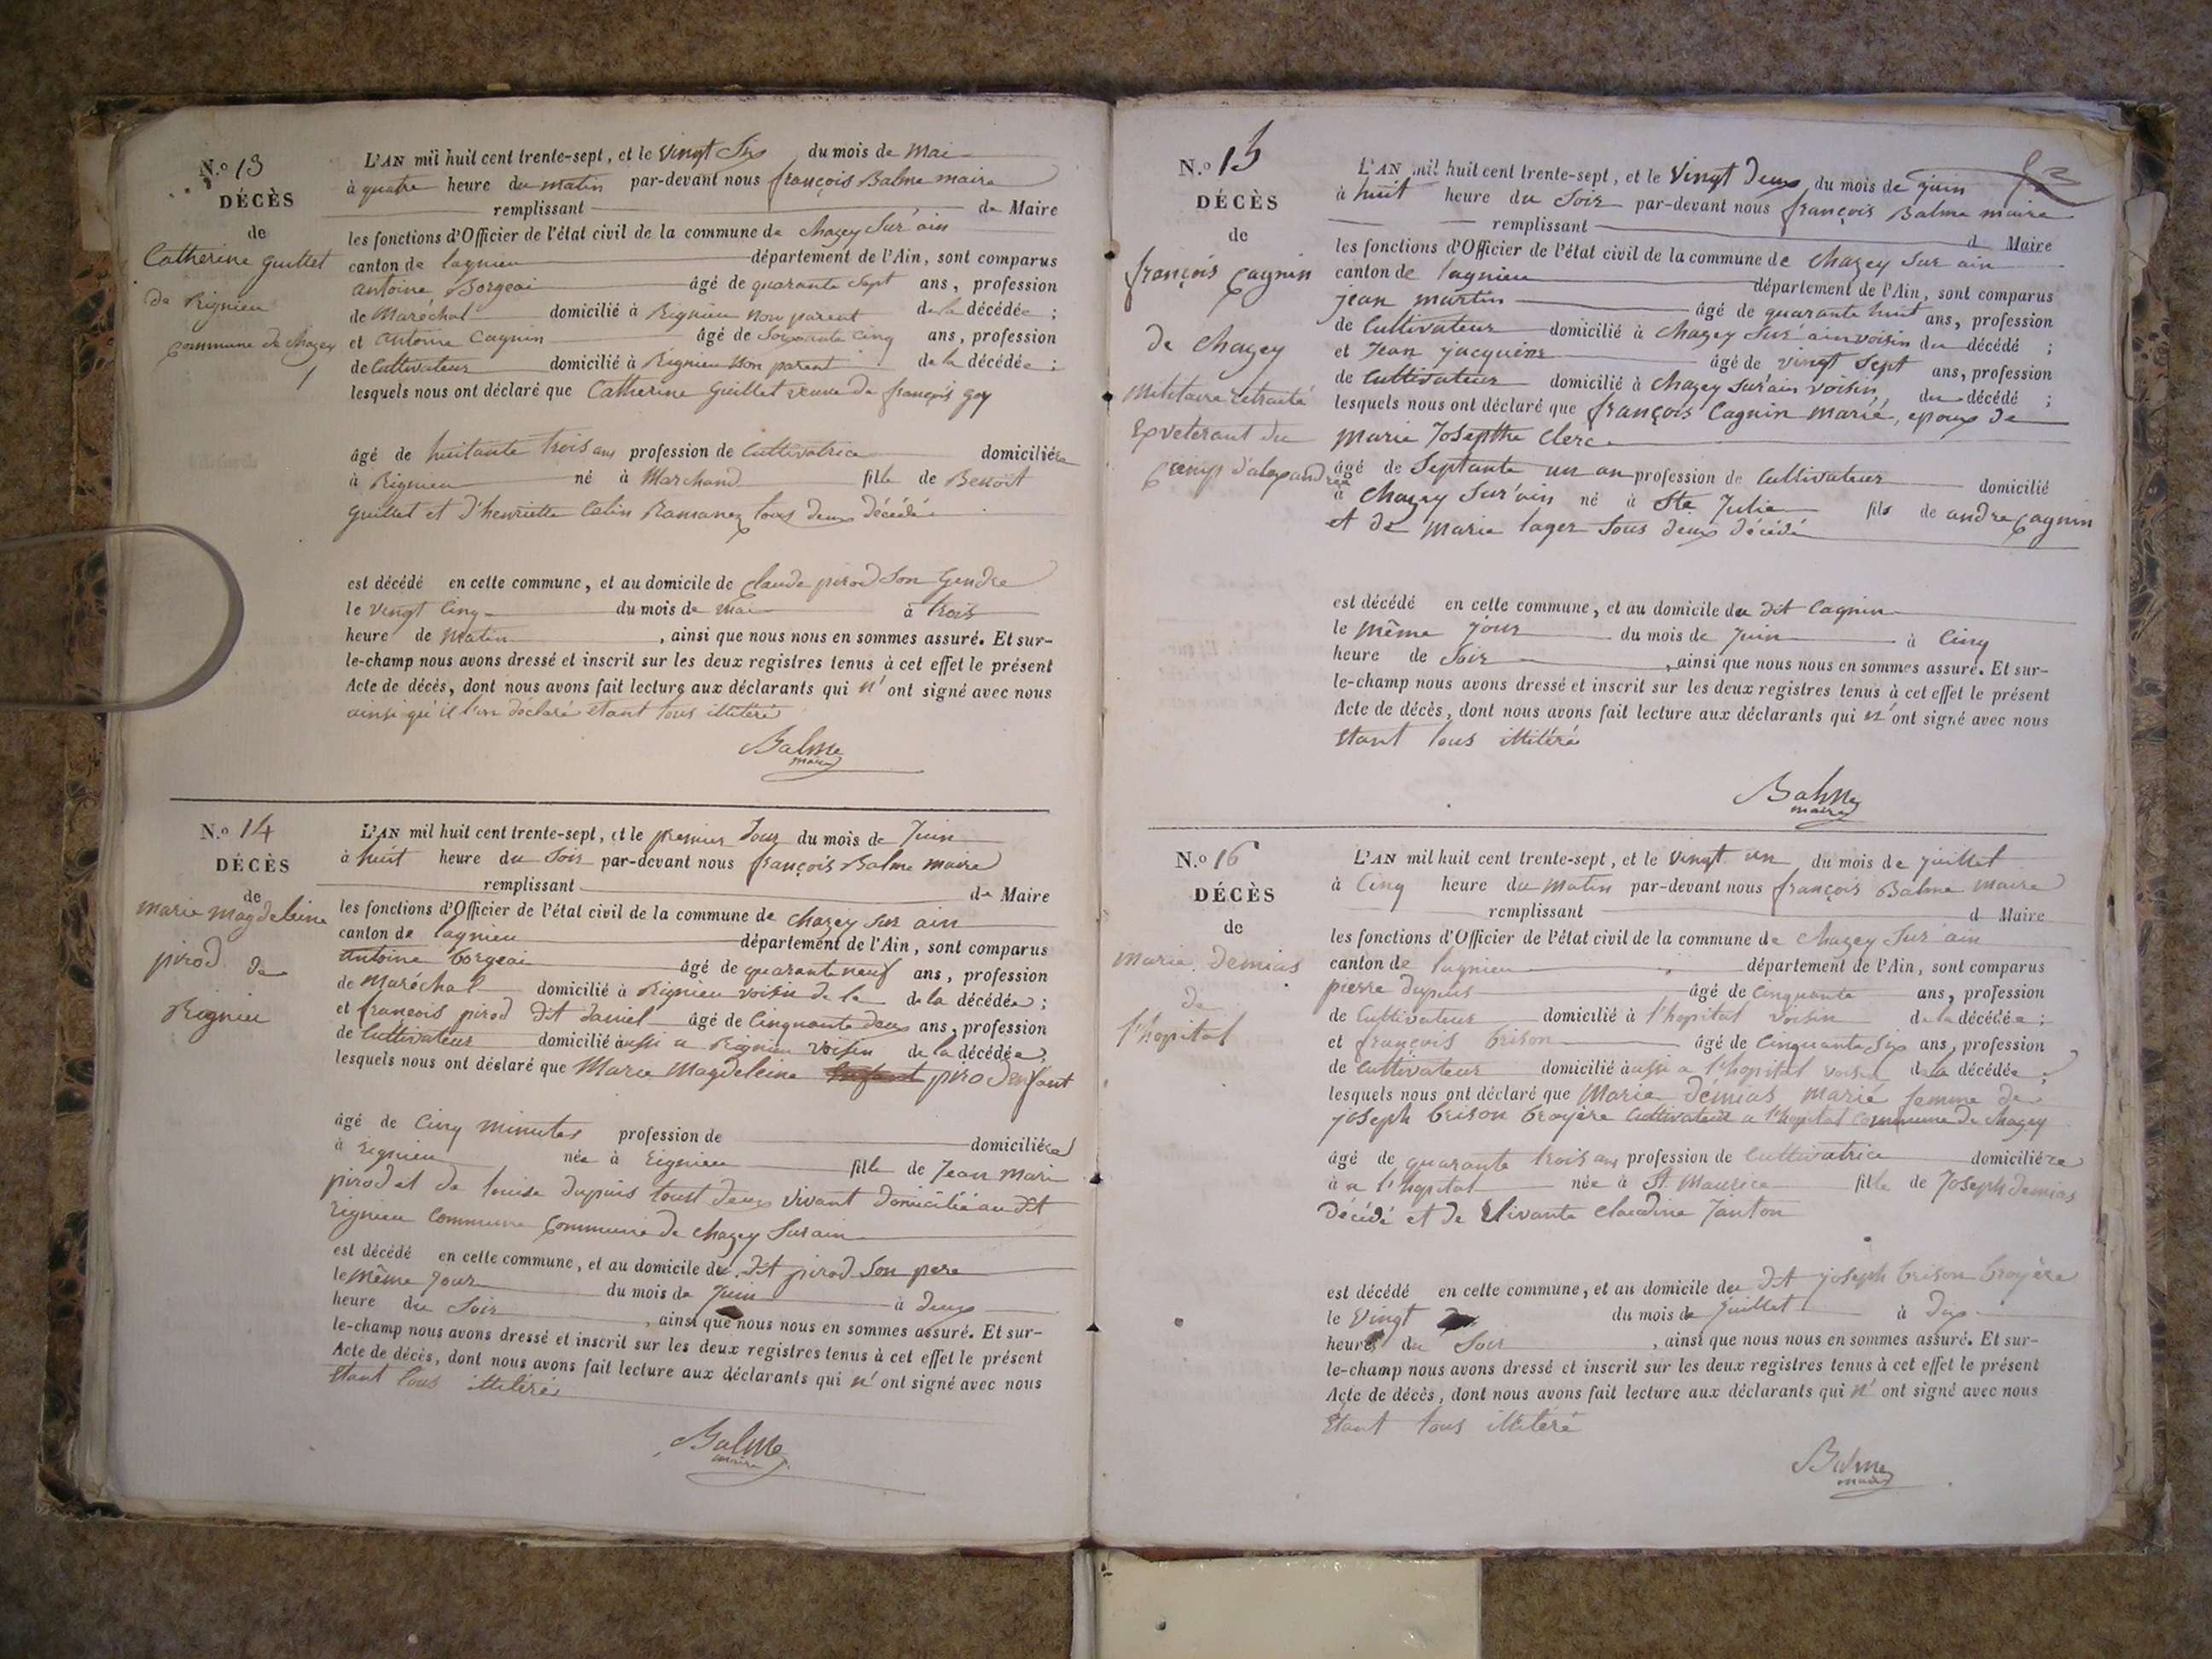 N.o 13
DÉCÈS
de
Catherine guillet
de Rignieu
Commune de Chazey
L'AN mil huit cent trente-sept, et le vingt Six du mois de Mai
à quatre heure du matin par-devant nous françois Balme maire
remplissant de Maire
les fonctions d'Officier de l'état civil de la commune de chazey Sur ain
canton de lagnieu département de l'Ain, sont comparus
antoine Borgeai âgé de quarante Sept ans, profession
de Maréchal domicilié à Rignieu non parent de la décédée ;
et antoine Cagnin âgé de Soixante Cinq ans, profession
de Cultivateur domicilié à Rignieu non parent de la décédée ;
lesquels nous ont déclaré que Catherine Guillet veuve de françois goy
âgé de huitante trois ans profession de Cultivatrice domiciliée
à Rignieu né à Marchand fille de Benoit
guillet et d'henriette Colin Ramanez tous deux décédé
est décédé en cette commune, et au domicile de Claude pirod Son Gendre
le vingt Cinq du mois de mai à trois
heure de Matin , ainsi que nous nous en sommes assuré. Et sur-
le-champ nous avons dressé et inscrit sur les deux registres tenus à cet effet le présent
Acte de décès, dont nous avons fait lecture aux déclarants qui n' ont signé avec nous
ainsi qu'il l'on déclaré étant tous illitéré
Balme
maire
N.o 14
DÉCÈS
de
marie magdeleine
pirod de
Rignieu
L'AN mil huit cent trente-sept, et le premier Jour du mois de Juin
à huit heure du Soir par-devant nous françois Balme maire
remplissant de Maire
les fonctions d'Officier de l'état civil de la commune de chazey Sur ain
canton de lagnieu département de l'Ain, sont comparus
antoine borgeai âgé de quarante neuf ans, profession
de Maréchal domicilié à Rignieu voisin de la de la décédée ;
et francois pirod dit daniel âgé de Cinquante deux ans, profession
de Cultivateur domicilié aussi a Rignieu voisin de la décédée ;
lesquels nous ont déclaré que Marie Magdeleine pirod enfant
âgé de Cinq minutes profession de domiciliée
à Rignieu née à Rignieu fille de Jean Mari
pirod et de louise dupuis toust deux vivant domicilié au dit
Rignieu Commune Commune de chazey Sur ain
est décédé en cette commune, et au domicile du dit pirod Son pere
le même Jour du mois de Juin à deux
heure du Soir , ainsi que nous nous en sommes assuré. Et sur-
le-champ nous avons dressé et inscrit sur les deux registres tenus à cet effet le présent
Acte de décès, dont nous avons fait lecture aux déclarants qui n' ont signé avec nous
étant tous illitéré
Balme
maire
N.o 15
DÉCÈS
de
françois Cagnin
de Chazey
Militaire retraité
Ex veterant du
Camp d'alexandrée
L'AN mil huit cent trente-sept, et le Vingt deux du mois de juin
à huit heure du Soir par-devant nous françois Balme maire
remplissant d Maire
les fonctions d'Officier de l'état civil de la commune de chazey Sur ain
canton de lagnieu département de l'Ain, sont comparus
jean martin âgé de quarante huit ans, profession
de Cultivateur domicilié à Chazey Sur ain voisin du décédé ;
et Jean jacquier âgé de vingt Sept ans, profession
de Cultivateur domicilié à Chazey Sur ain voisin, du décédé ;
lesquels nous ont déclaré que françois Cagnin marié, epoux de
Marie Josepthe Clerc
âgé de Septante un an profession de Cultivateur domicilié
à Chazey Sur ain né à Ste Julie fils de andre Cagnin
et de Marie lager tous deux décédé
est décédé en cette commune, et au domicile du dit Cagnin
le même jour du mois de Juin à Cinq
heure de Soir , ainsi que nous nous en sommes assuré. Et sur-
le-champ nous avons dressé et inscrit sur les deux registres tenus à cet effet le présent
Acte de décès, dont nous avons fait lecture aux déclarants qui n' ont signé avec nous
étant tous illitéré
Balme
maire
N.o 16
DÉCÈS
de
Marie demias
de
l'hopital
L'AN mil huit cent trente-sept, et le vingt un du mois de juillet
à Cinq heure du matin par-devant nous françois Balme maire
remplissant d Maire
les fonctions d'Officier de l'état civil de la commune de chazey Sur ain
canton de lagnieu département de l'Ain, sont comparus
pierre dupuis âgé de Cinquante ans, profession
de Cultivateur domicilié à l'hopital voisin de la décédée ;
et françois brison âgé de Cinquante Six ans, profession
de Cultivateur domicilié aussi a l'hopital voisin de la décédée ;
lesquels nous ont déclaré que Marie démias Marié femme de
joseph brison broyère Cultivateur a l'hopital Commune de chazey
âgé de quarante trois ans profession de Cultivatrice domiciliée
à a l'hopital née à St. Maurice fille de Joseph demias
décédé et de vivante claudine Janton
est décédé en cette commune, et au domicile du dit joseph brison broyère
le vingt du mois de juillet à dix
heures du Soir , ainsi que nous nous en sommes assuré. Et sur-
le-champ nous avons dressé et inscrit sur les deux registres tenus à cet effet le présent
Acte de décès, dont nous avons fait lecture aux déclarants qui n' ont signé avec nous
étant tous illitéré
Balme
maire